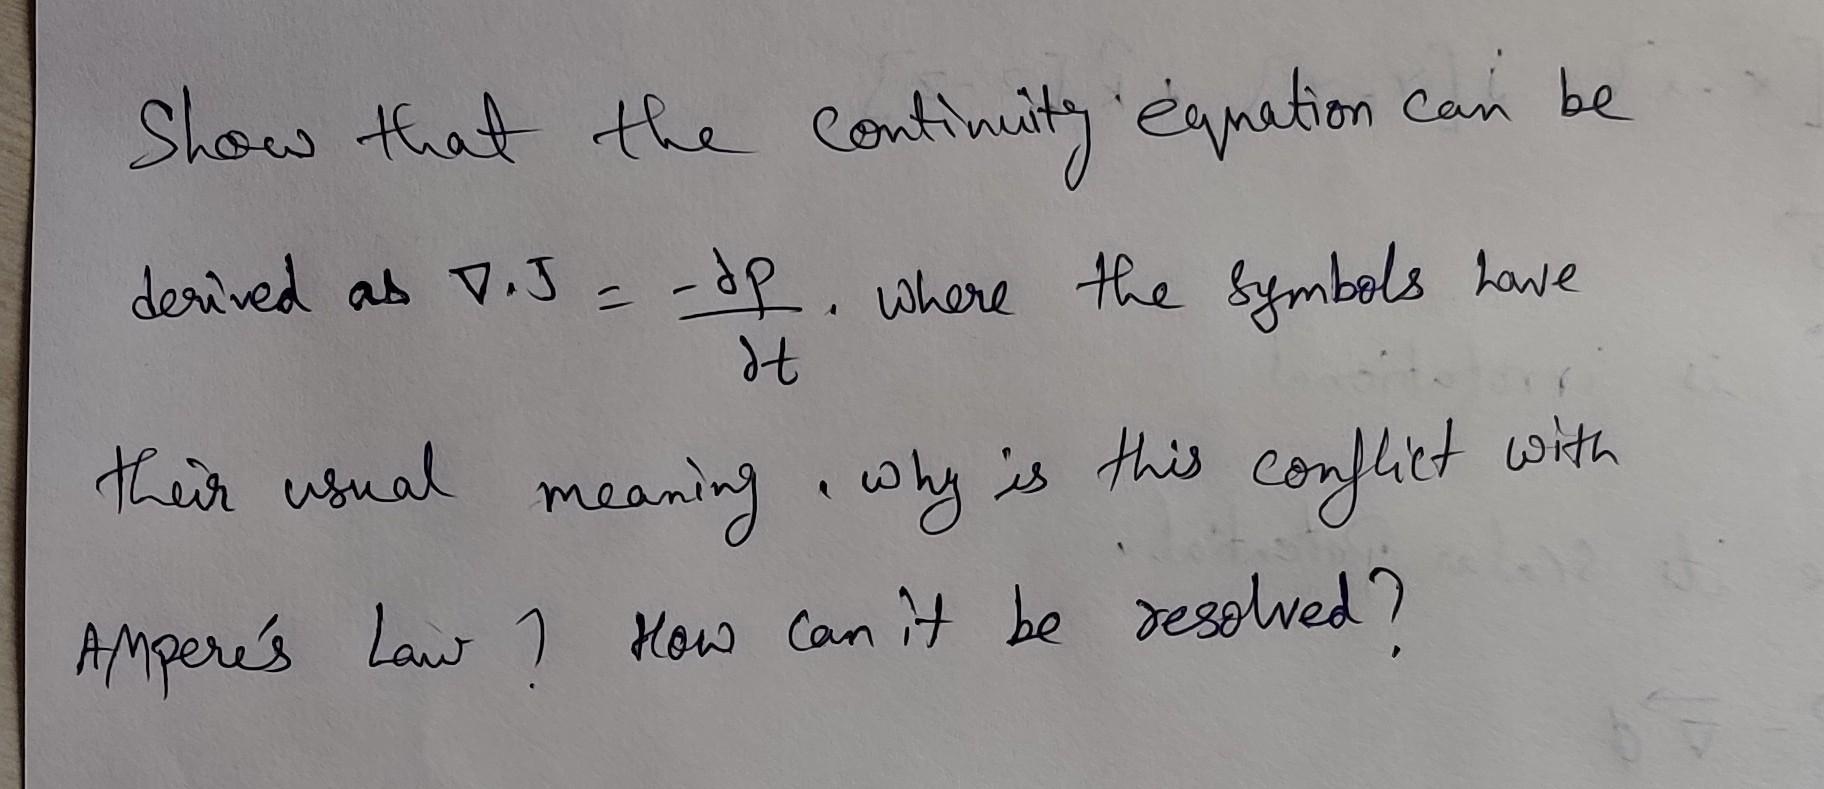 Show that the continuity equation can be
derived as ∇.J = -∂ρ/∂t . where the symbols have
their usual meaning . why is this conflict with
AMpere's Law ? How can it be resolved?